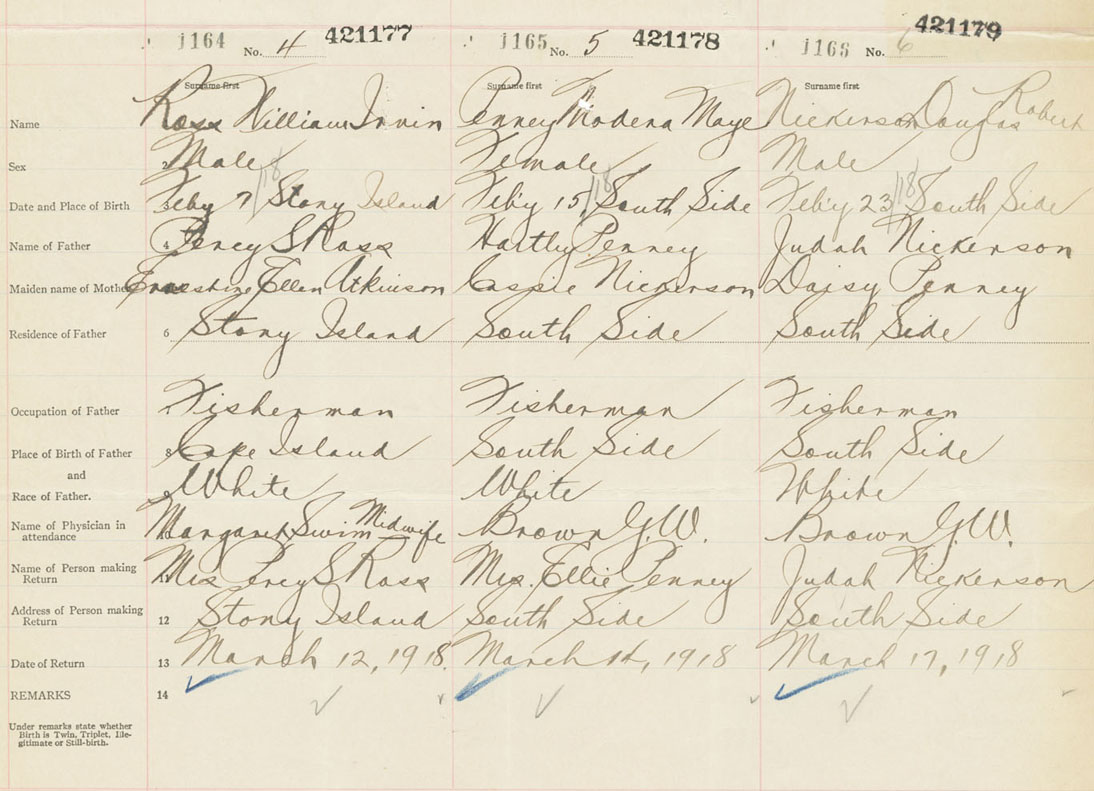 j164 No. 4 421177 j165 No. 5 421178 j166 No. 6 421179
Surname first Surname first Surname first
Name Ross William Irvin Penney Modena Maye Nickerson Douglas Robert
Sex 2 Male Female Male
Date and Place of Birth 3 Feby 7/18 Stony Island Feb'y 15/18 South Side Feb'y 23/18 South Side
Name of Father 4 Percy S Ross Hartly Penney Judah Nickerson
Maiden name of Mother Ernestine Ellen Atkinson Cassie Nickerson Daisy Penney
Residence of Father 6 Stony Island South Side South Side
Occupation of Father Fisherman Fisherman Fisherman
Place of Birth of Father 8 Cape Island South Side South Side
and
Race of Father. White White White
Name of Physician in
attendance Margaret Swim Midwife Brown G.W. Brown G.W.
Name of Person making
Return 11 Mrs Percy S Ross Mrs. Ellie Penney Judah Nickerson
Address of Person making
Return 12 Stony Island South Side South Side
Date of Return 13 March 12, 1918. March 14, 1918 March 17, 1918
REMARKS 14
Under remarks state whether
Birth is Twin, Triplet, Ille-
gitimate or Still-birth.